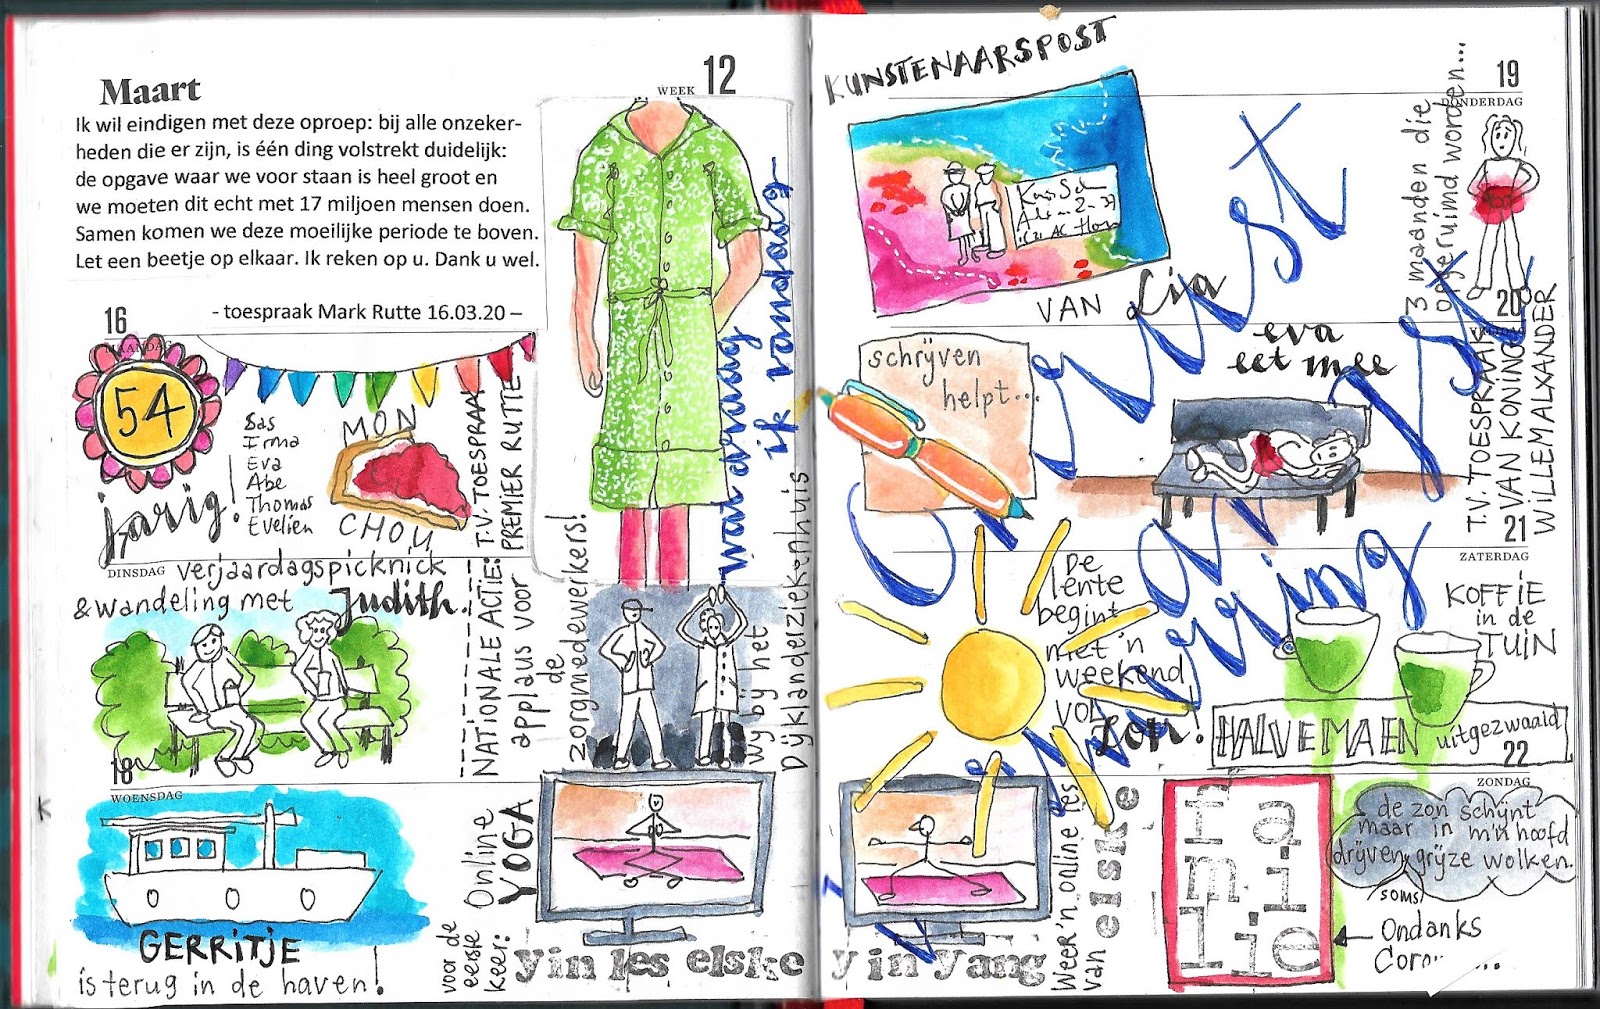 Maart
WEEK 12
Ik wil eindigen met deze oproep: bij alle onzeker-
heden die er zijn, is één ding volstrekt duidelijk:
de opgave waar we voor staan is heel groot en
we moeten dit echt met 17 miljoen mensen doen.
Samen komen we deze moeilijke periode te boven.
Let een beetje op elkaar. Ik reken op u. Dank u wel.
- toespraak Mark Rutte 16.03.20 –
16
MAANDAG
54
jarig!
Bas
Irma
Eva
Abe
Thomas
Evelien
MON
CHOU
T.V. TOESPRAAK
PREMIER RUTTE
wat draag
ik vandaag
DINSDAG
verjaardagspicknick
& wandeling met
Judith.
NATIONALE ACTIE:
applaus voor
de
zorgmedewerkers!
wij bij het
Dijklanderziekenhuis
18
WOENSDAG
GERRITJE
is terug in de haven!
voor de
eerste
keer:
Online
YOGA
yin les elske
KUNSTENAARSPOST
VAN Lia
19
DONDERDAG
3 maanden die
opgeruimd worden...
schrijven
helpt...
20
VRIJDAG
eva
eet mee
T.V. TOESPRAAK
VAN KONING
WILLEMALXANDER
21
ZATERDAG
De
lente
begint
met 'n
weekend
vol
Zon!
KOFFIE
in de
TUIN
HALVEMAEN
uitgezwaaid
22
ZONDAG
yin yang
Weer 'n online les
van elske
familie
de zon schijnt
maar in m'n hoofd
drijven grijze wolken.
soms
Ondanks